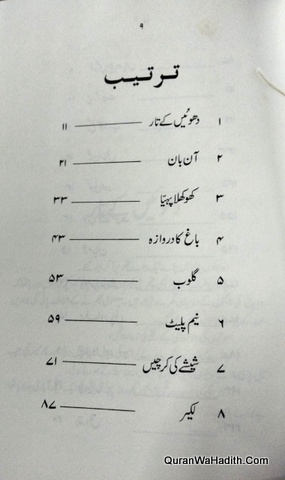 ۹
ترتیب
۱ دھوئیں کے تار ۱۱
۲ آن بان ۲۱
۳ کھوکھلا پہیّا ۳۳
۴ باغ کا دروازہ ۴۳
۵ گلوب ۵۳
۶ نیم پلیٹ ۵۹
۷ شیشے کی کرچیں ۷۱
۸ لکیر ۸۷
QuranWaHadith.Com